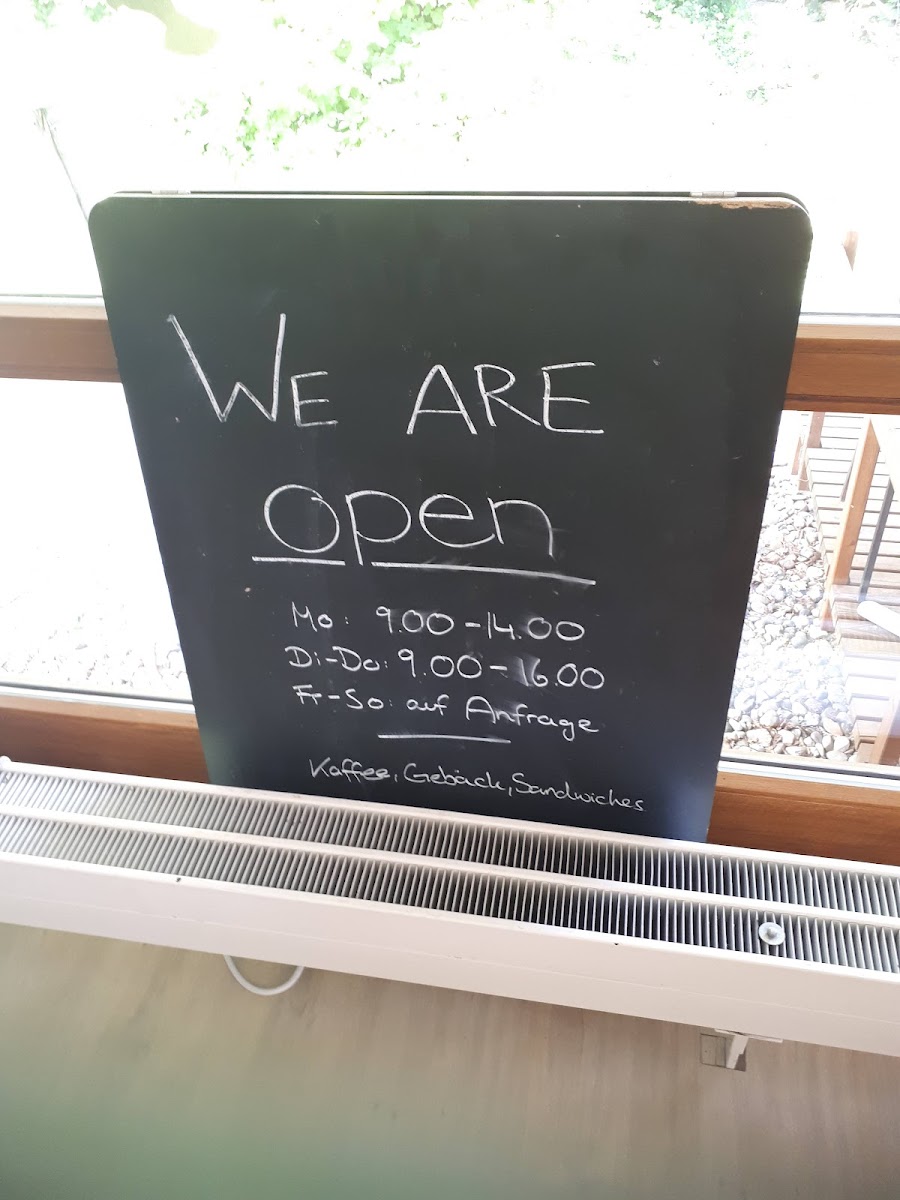 WE ARE
open
Mo: 9.00-14.00
Di-Do: 9.00-16.00
Fr-So: auf Anfrage
Kaffee, Gebäck, Sandwiches